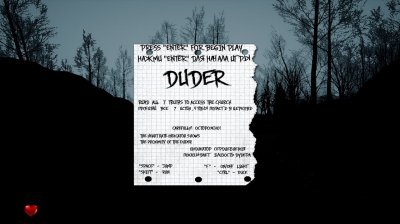 PRESS "ENTER" FOR BEGIN PLAY
НАЖМИ "ENTER" ДЛЯ НАЧАЛА ИГРЫ
DUDER
READ ALL 7 TRUTHS TO ACCESS THE CHURCH
ПРОЧТИ ВСЕ 7 ИСТИН, ЧТОБЫ ПОПАСТЬ В ЦЕРКОВЬ
CAREFULLY ОСТОРОЖНО!
THE HEART RATE INDICATOR SHOWS
THE PROXIMITY OF THE DUDER
ИНДИКАТОР СЕРДЦЕБИЕНИЯ
ПОКАЗЫВАЕТ БЛИЗОСТЬ ДУДЕРА
"SPACE" - JUMP "F" - ON/OFF LIGHT
"SHIFT" - RUN "CTRL" - DUCK